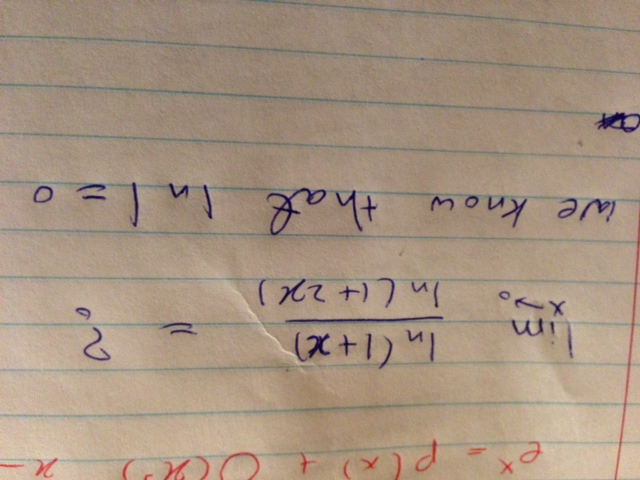 eˣ = p(x) + O(x³) x -
lim x→0 ln(1+x) / ln(1+2x) = ?
we know that ln 1 = 0